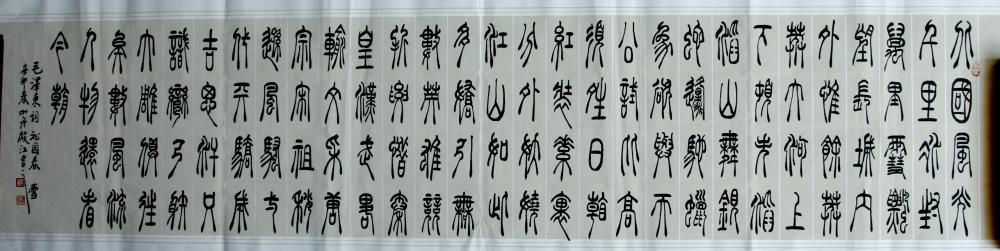 北國風光
千里冰封
萬里雪飄
望長城內
外惟餘莽
莽大河上
下頓失滔
滔山舞銀
蛇原馳蠟
象欲與天
公試比高
須晴日看
紅裝素裹
分外妖嬈
江山如此
多嬌引無
數英雄競
折腰惜秦
皇漢武略
輸文采唐
宗宋祖稍
遜風騷一
代天驕成
吉思汗只
識彎弓射
大雕俱往
矣數風流
人物還看
今朝
毛澤東詞沁園春雪
辛卯春山丹殷江書